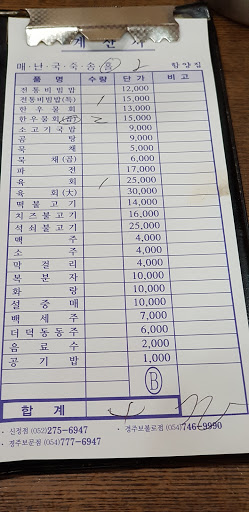 계 산 서
매 · 난 · 국 · 죽 · 송 2 함양집
품 명 수량 단 가 비 고
전통비빔밥 12,000
전통비빔밥(특) 1 15,000
한 우 물 회 13,000
한우물회(특) 2 15,000
소고기국밥 9,000
곰 탕 9,000
묵 채 5,000
묵 채(곱) 6,000
파 전 17,000
육 회 1 25,000
육 회(大) 30,000
떡불고기 14,000
치즈불고기 16,000
석쇠불고기 25,000
맥 주 4,000
소 주 4,000
막 걸 리 4,000
복 분 자 10,000
화 랑 10,000
설 중 매 10,000
백 세 주 7,000
더덕동동주 6,000
음 료 수 2,000
공 기 밥 1,000
B
합 계
· 신정점 (052)275-6947 · 경주보불로점 (054)746-9990
· 경주보문점 (054)777-6947